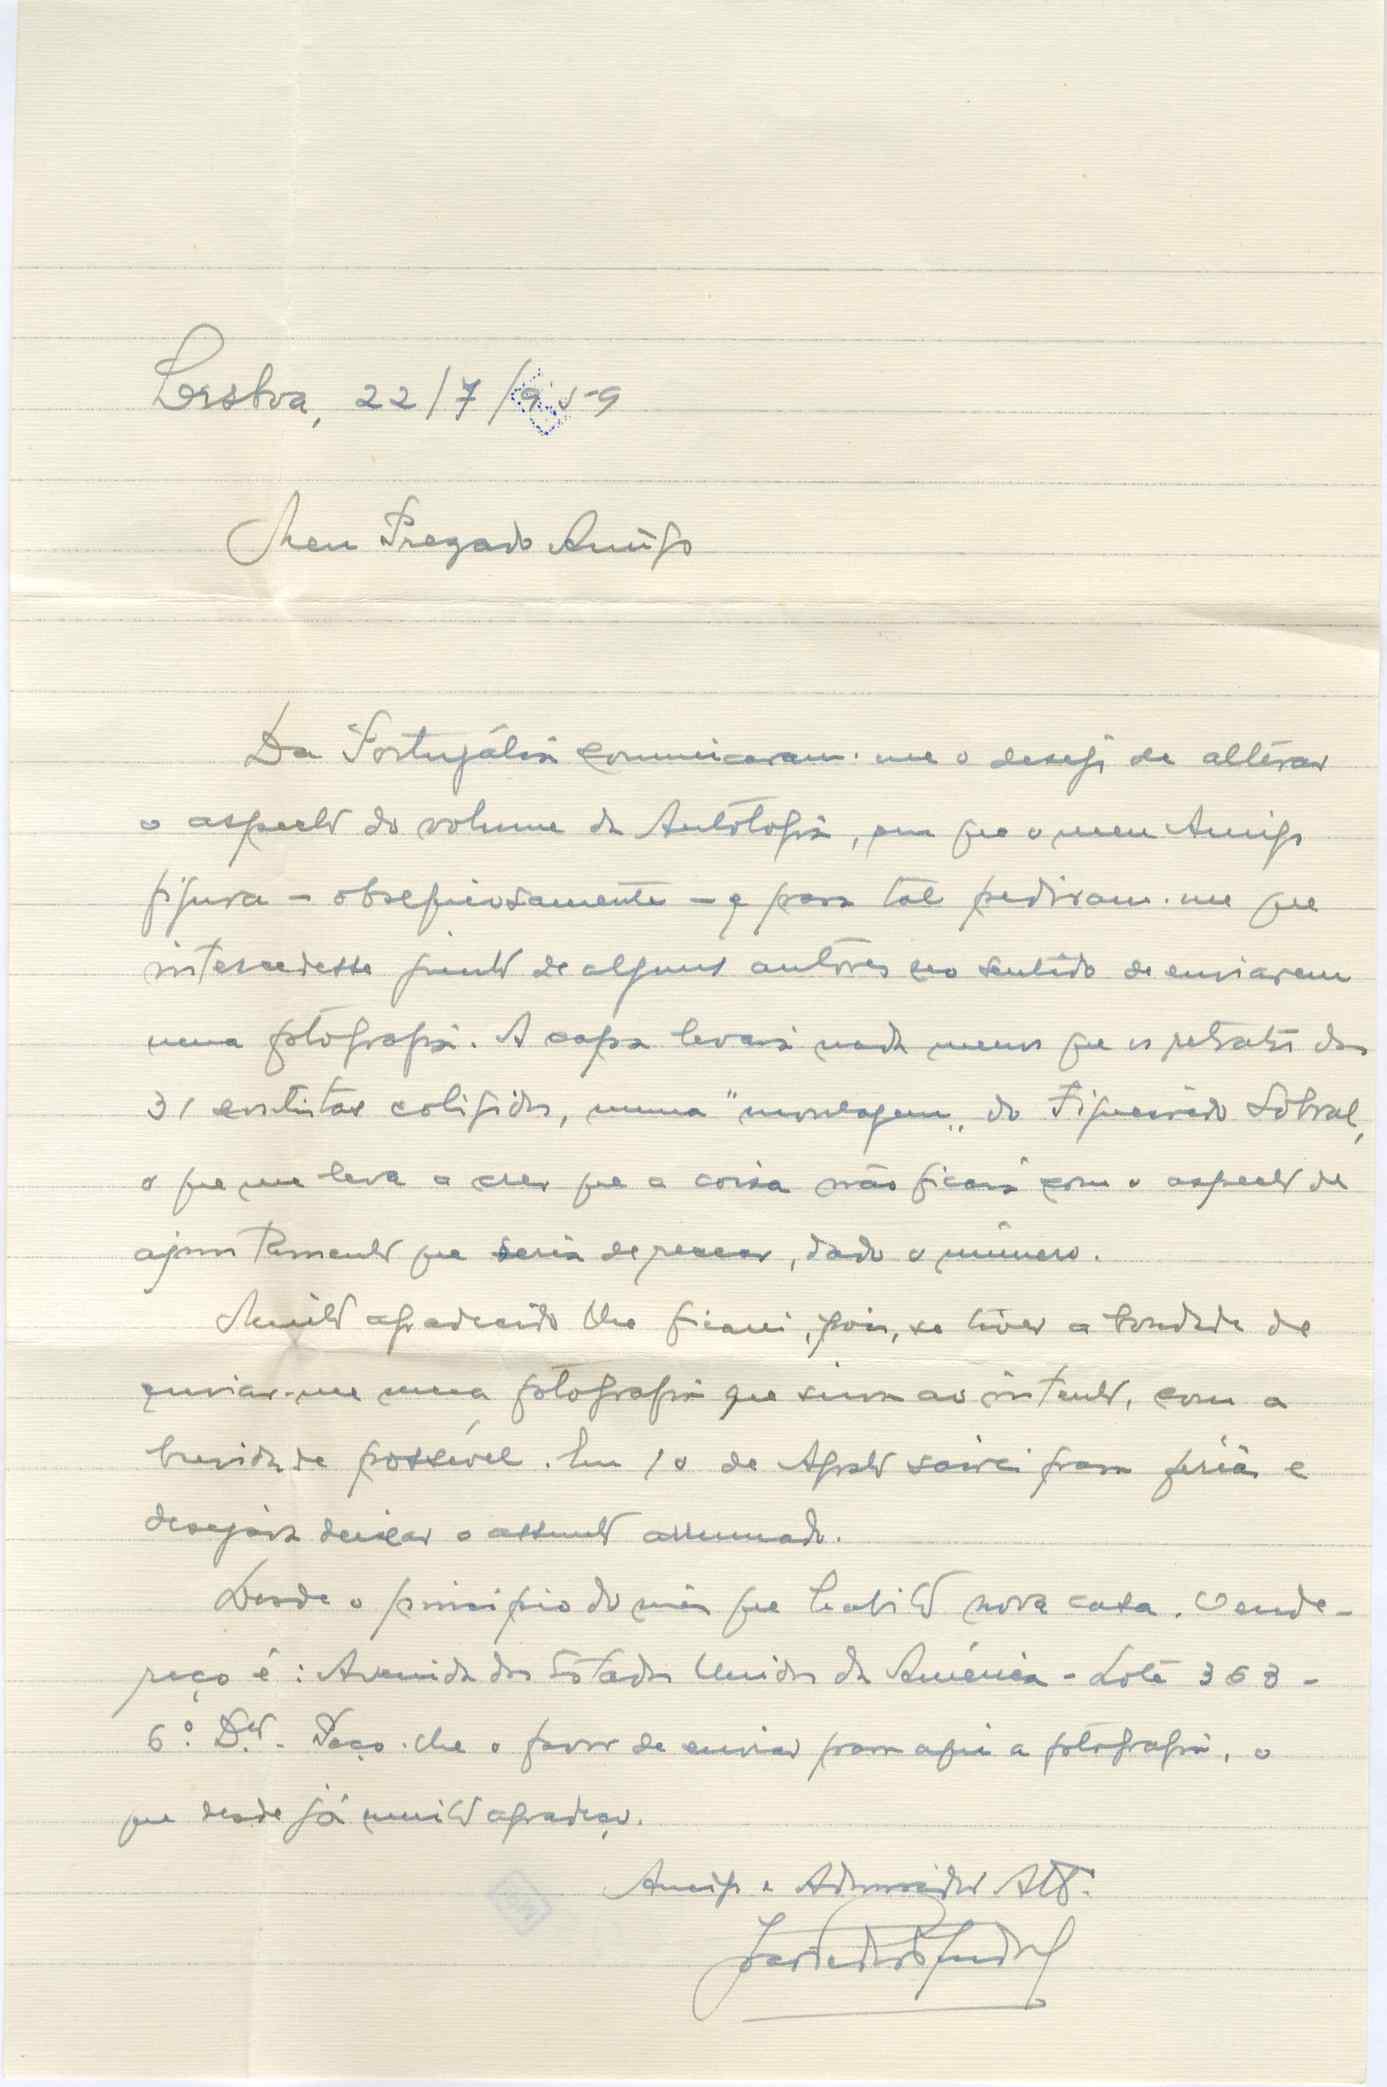 Lisboa, 22/7/959
Meu Prezado Amigo
Da Portugália comunicaram-me o desejo de alterar
o aspecto do volume da Antologia, em que o meu Amigo
figura - obsequiosamente - e para tal pediram-me que
intercedesse junto de alguns autores no sentido de enviarem
uma fotografia. A capa levará nada menos que os retratos dos
31 contistas coligidos, numa "montagem" do Figueiredo Sobral,
o que me leva a crer que a coisa não ficará com o aspecto de
ajuntamento que seria de recear, dado o número.
Muito agradecido lhe ficarei, pois, se tiver a bondade de
enviar-me uma fotografia que sirva ao intento, com a
brevidade possível. Em 10 de Agosto sairei para férias e
desejava deixar o assunto arrumado.
Desde o princípio do mês que habito nova casa. O ende-
reço é: Avenida dos Estados Unidos da América - Lote 363 -
6º. Dto. - Peço-lhe o favor de enviar para aqui a fotografia, o
que desde já muito agradeço.
Amigo e Admirador Atº.